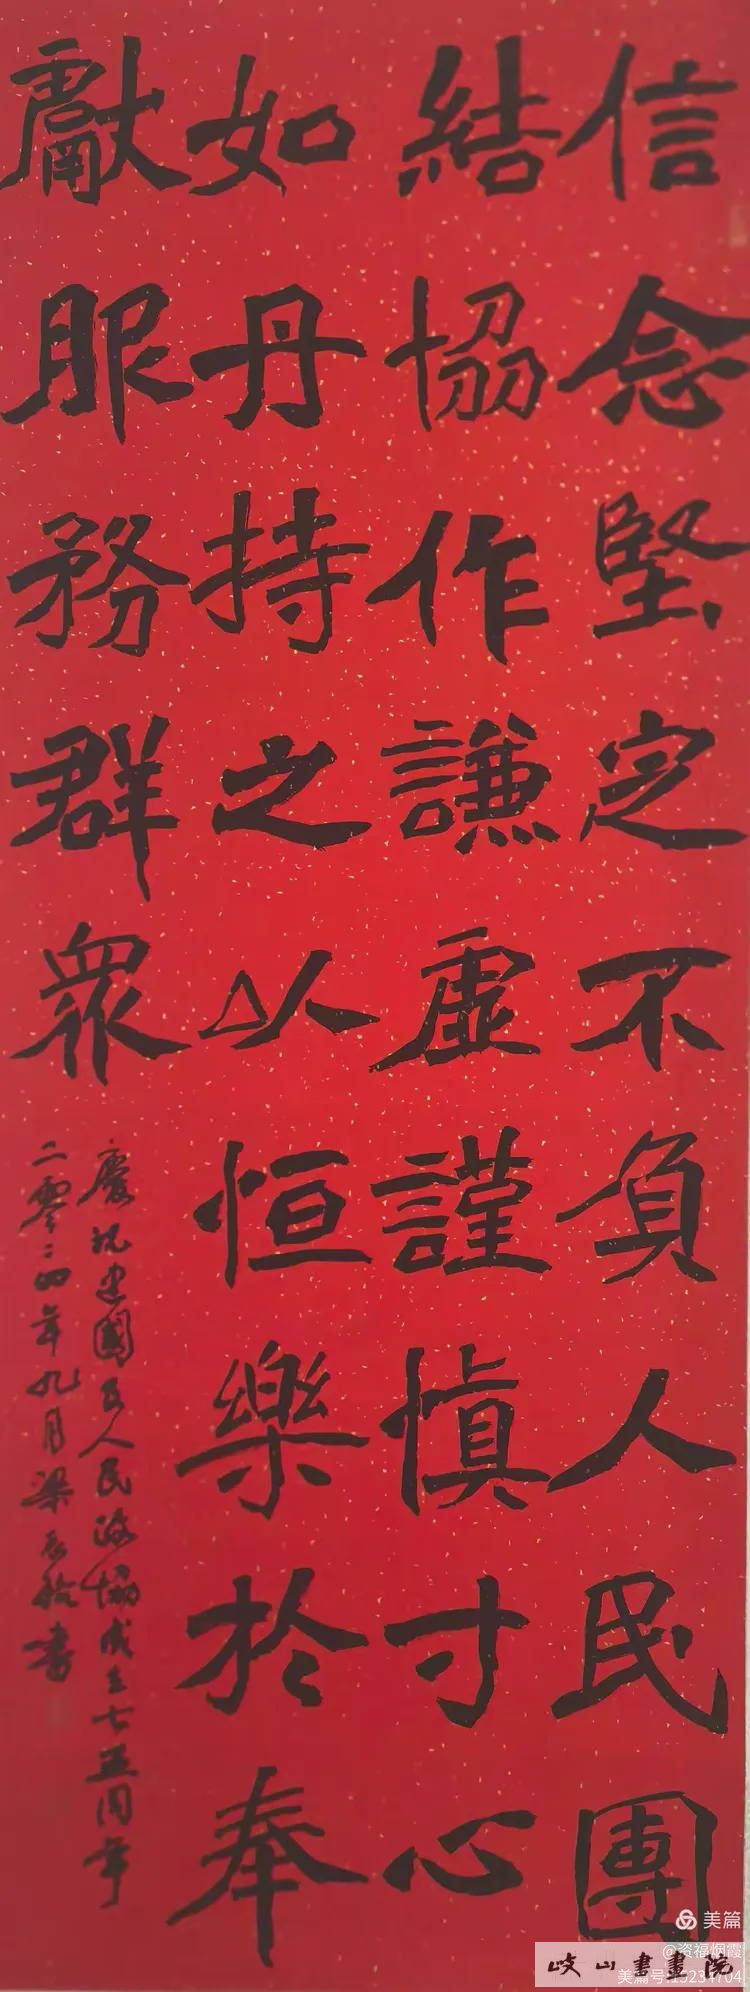 信念堅定不負人民團
結協作謙虛謹慎寸心
如丹持之以恒樂於奉
獻服務群衆
慶祝建國及人民政協成立七十五周年
二零二四年九月梁書
美篇
@资福烟霞
美篇号:15234704
岐山書畫院